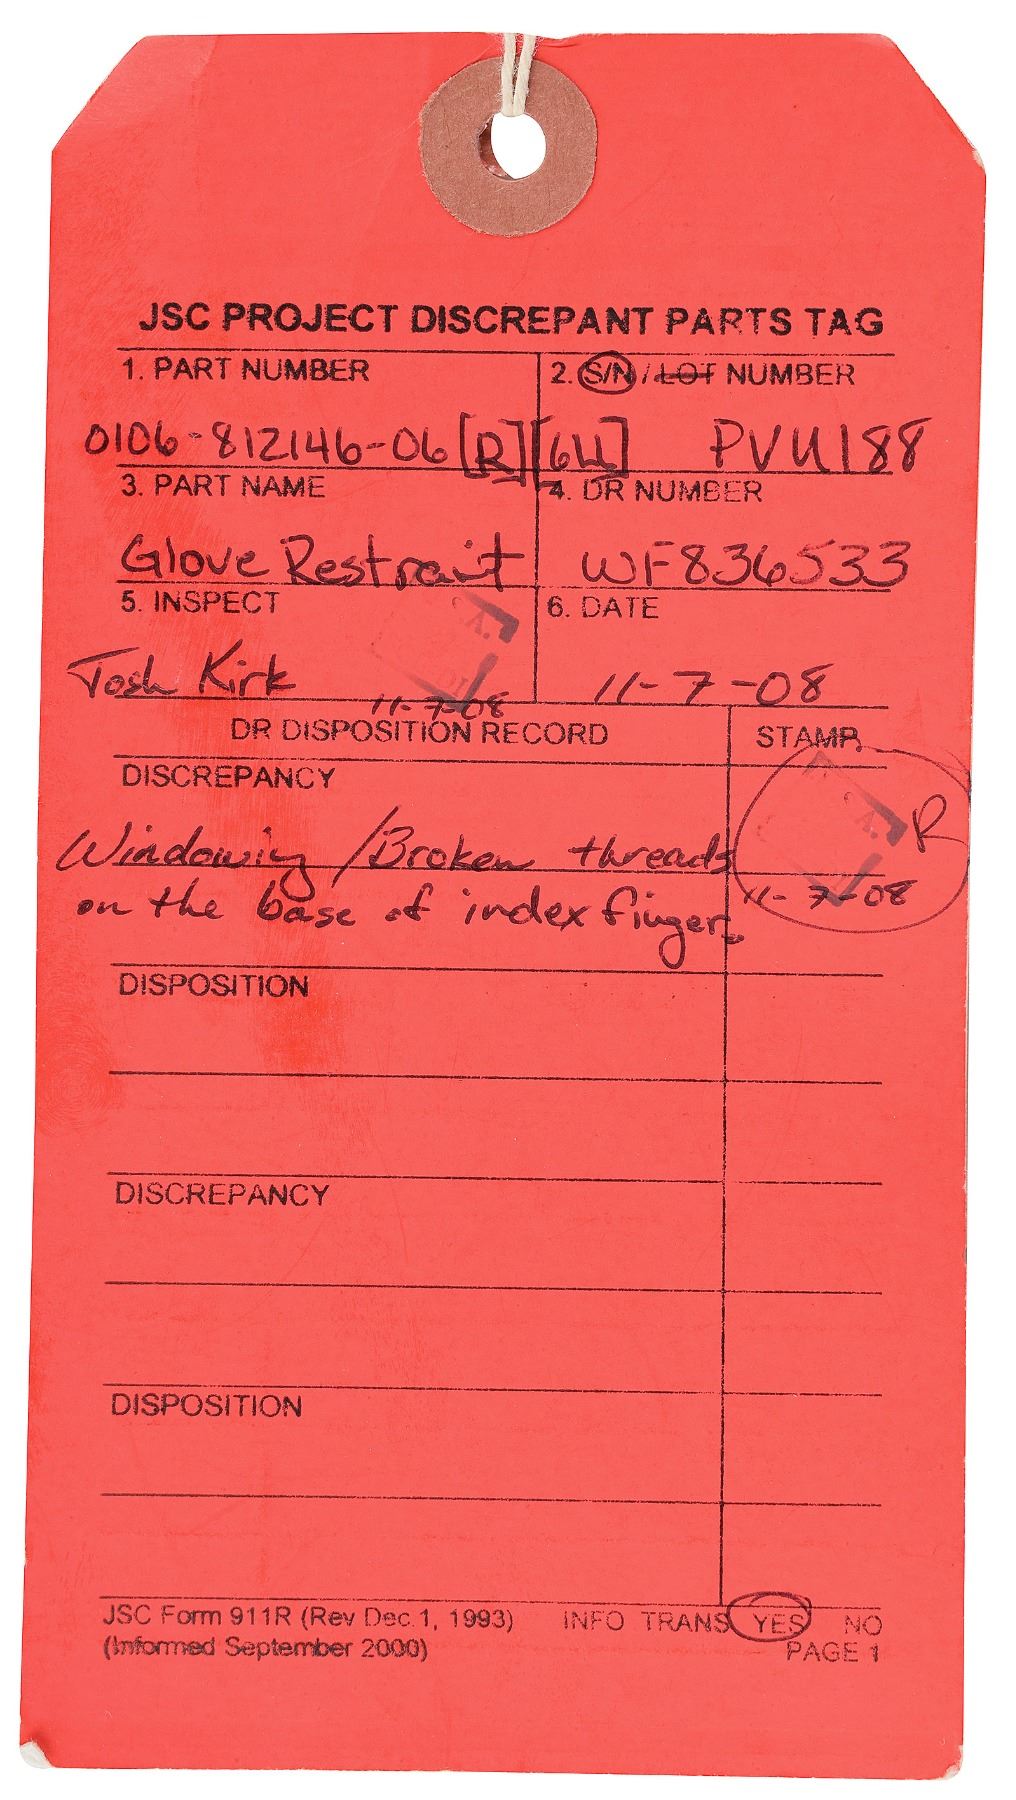 JSC PROJECT DISCREPANT PARTS TAG
1. PART NUMBER
2. S/N / LOT NUMBER
0106-812146-06 [R][6U] PVU188
3. PART NAME
4. DR NUMBER
Glove Restraint
WF836533
5. INSPECT
6. DATE
Josh Kirk
11-7-08
11-7-08
DR DISPOSITION RECORD
STAMP
DISCREPANCY
Windowing / Broken threads
on the base of index finger.
R
11-7-08
DISPOSITION
DISCREPANCY
DISPOSITION
JSC Form 911R (Rev Dec.1, 1993) INFO TRANS YES NO
(Informed September 2000) PAGE 1